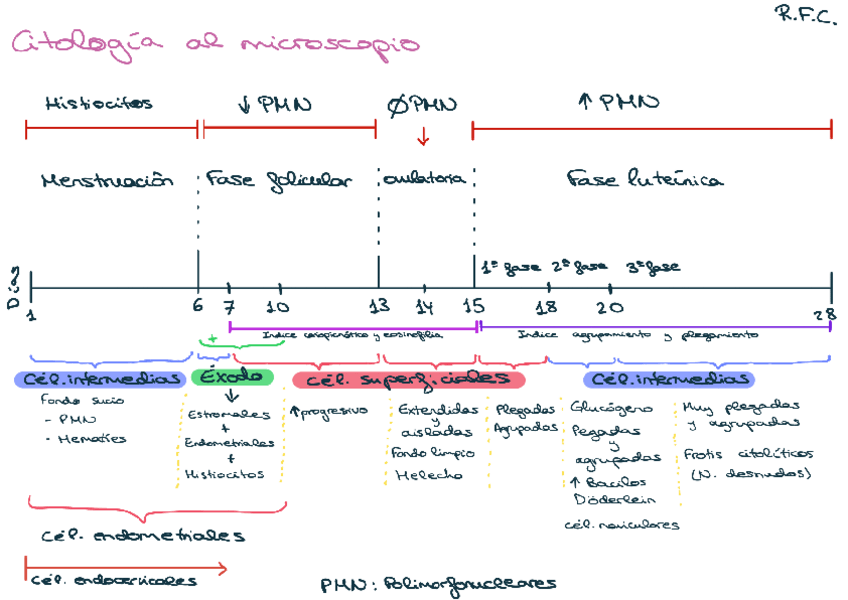 R.F.C.
Citología al microscopio
Histiocitos
↓ PMN
Ø PMN
↑ PMN
Menstruación
Fase folicular
ovulatoria
Fase luteínica
1ª fase 2ª fase 3ª fase
Días
1 6 7 10 13 14 15 18 20 28
+
Indice cariopicnótico y eosinofilia
Indice agrupamiento y plegamiento
Cél. intermedias
Éxodo
Cél. superficiales
Cél. intermedias
Fondo sucio
- PMN
- Hematíes
Estromales
+
Endometriales
+
Histiocitos
↑ progresivo
Extendidas
y
aisladas
Fondo limpio
Helecho
Plegadas
Agrupadas
Glucógeno
Pegadas
y
agrupadas
↑ Bacilos
Döderlein
cél. naviculares
Muy plegadas
y agrupadas
Frotis citolíticos
(N. desnudos)
Cél. endometriales
Cél. endocervicales
PMN: Polimorfonucleares